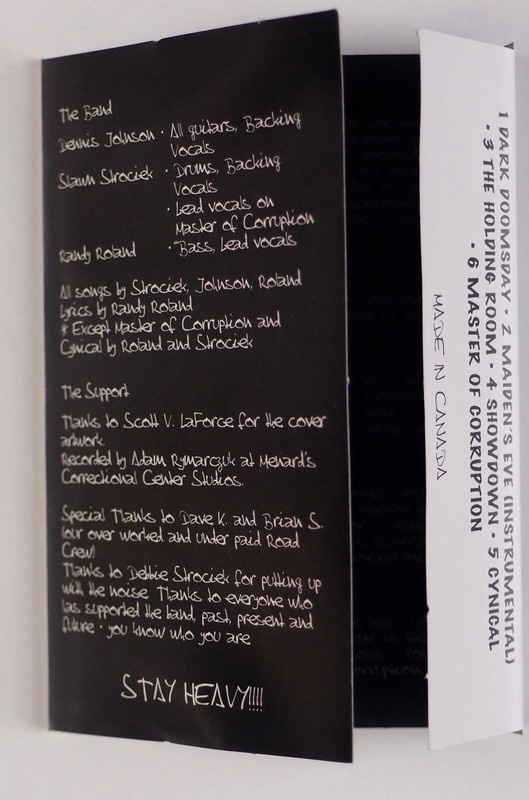 The Band
Dennis Johnson • All guitars, Backing
Vocals
Shawn Strociek • Drums, Backing
Vocals
• Lead vocals on
Master of Corruption
Randy Roland • Bass, Lead vocals
All songs by Strociek, Johnson, Roland
Lyrics by Randy Roland
* Except Master of Corruption and
Cynical by Roland and Strociek
The Support
Thanks to Scott V. LaForce for the cover
artwork.
Recorded by Adam Rymarczuk at Menard's
Correctional Center Studios.
Special Thanks to Dave K. and Brian S.
(our over worked and under paid Road
Crew)
Thanks to Debbie Strociek for putting up
with the noise Thanks to everyone who
has supported the band, past, present and
future • you know who you are
STAY HEAVY!!!!
1 DARK DOOMSDAY • 2 MAIDEN'S EVE (INSTRUMENTAL)
• 3 THE HOLDING ROOM • 4 SHOWDOWN • 5 CYNICAL
• 6 MASTER OF CORRUPTION
MADE IN CANADA